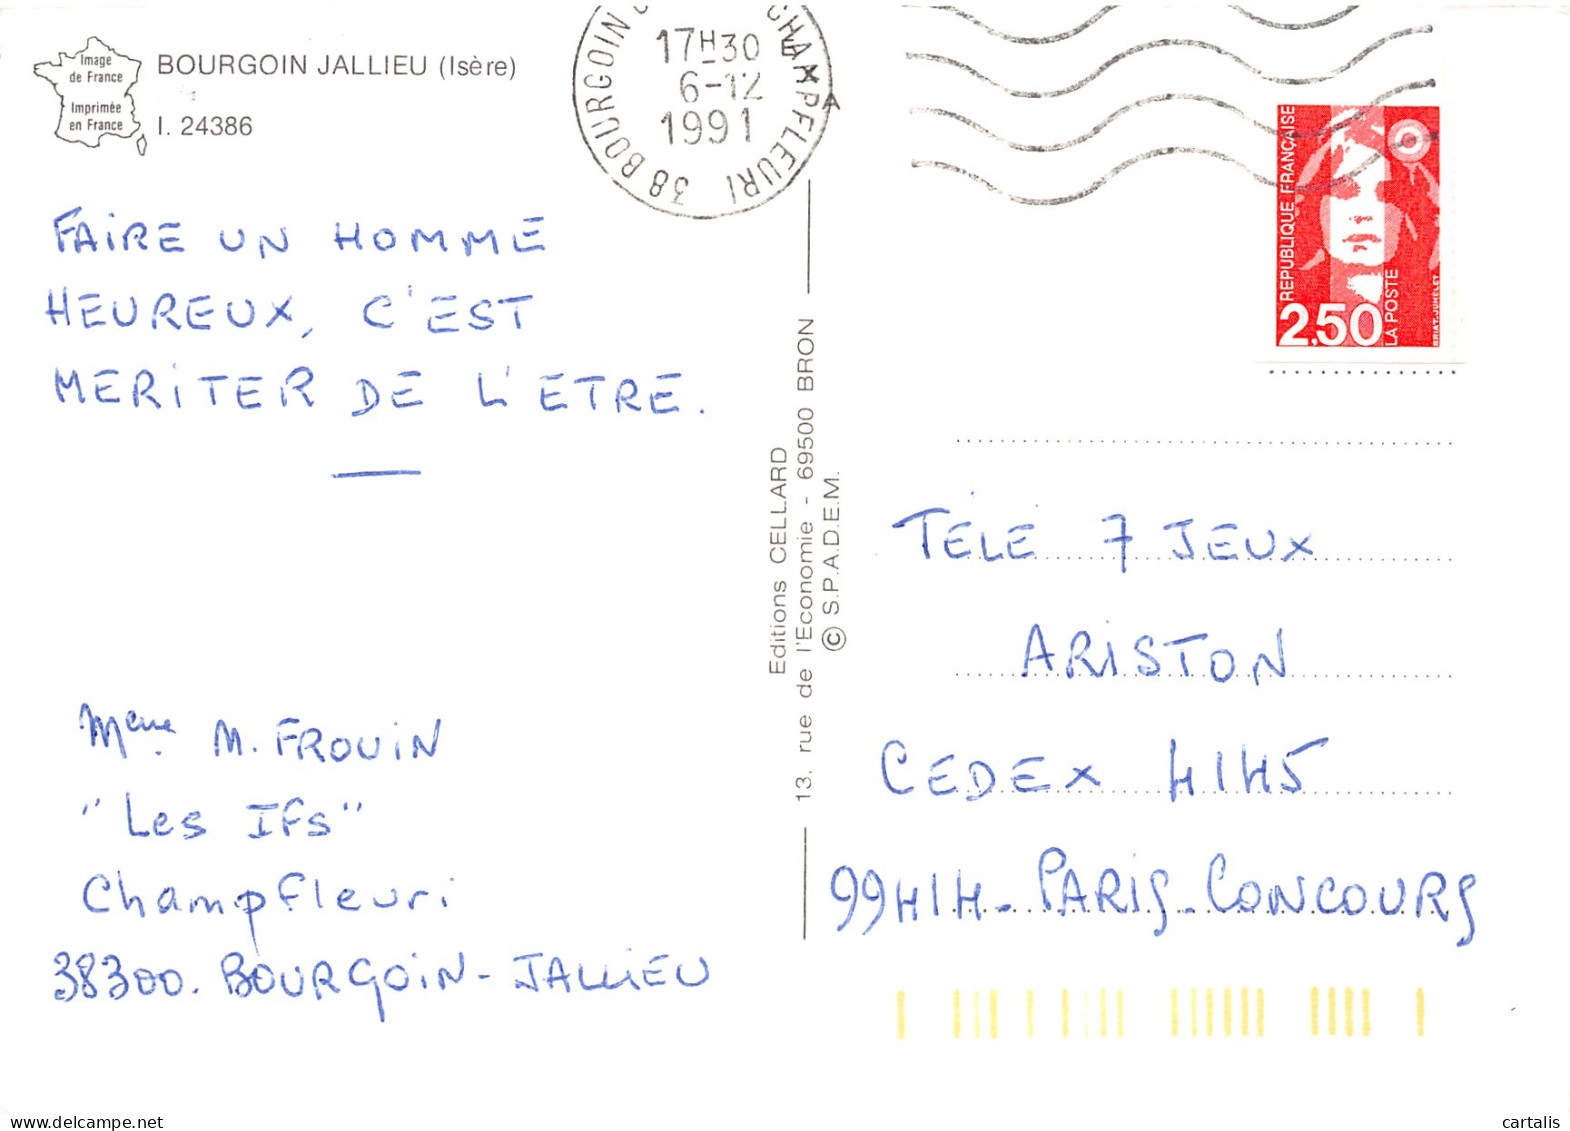 Image
de France
Imprimée
en France
BOURGOIN JALLIEU (Isère)
I. 24386
38 BOURGOIN
CHAMPFLEURI
17H30
6-12
1991
A
REPUBLIQUE FRANÇAISE
LA POSTE
BRIAT-JUMELET
2,50
FAIRE UN HOMME
HEUREUX, C'EST
MERITER DE L'ETRE.
Mme M. FROUIN
"Les Ifs"
Champfleuri
38300. BOURGOIN-JALLIEU
Editions CELLARD
13, rue de l'Economie - 69500 BRON
© S.P.A.D.E.M.
TELE 7 JEUX
ARISTON
CEDEX 4145
99414-PARIS-CONCOURS
cartalis.com